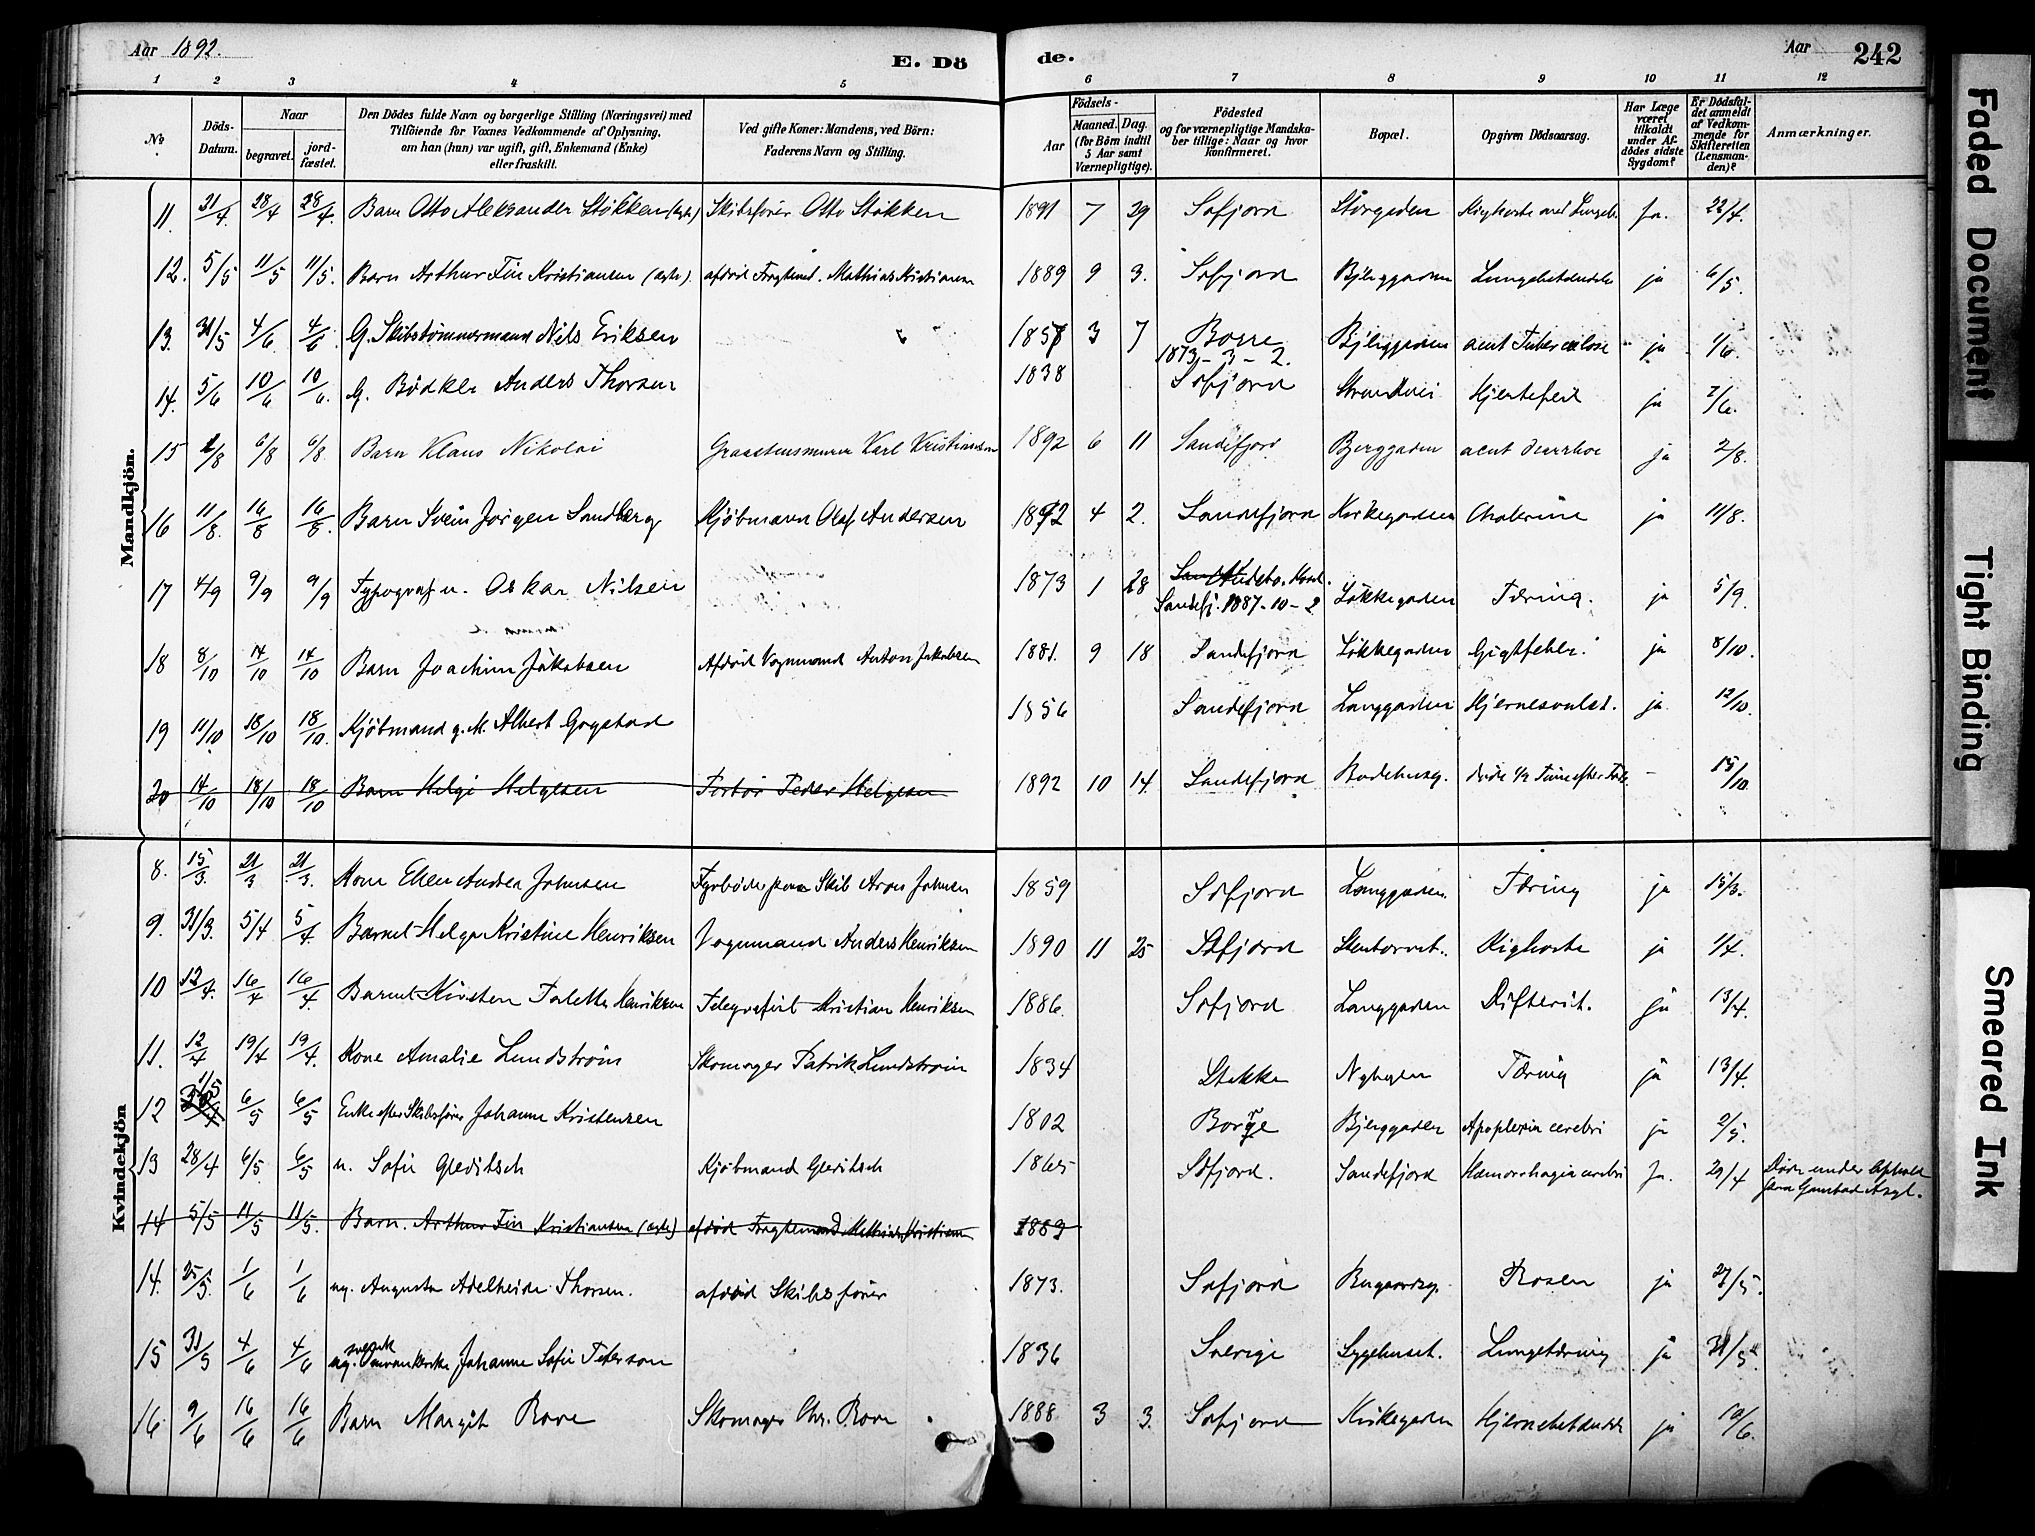 Aar 1892.
E. Dö
de.
Aar
242
1 2 3 4 5 6 7 8 9 10 11 12
No
Döds-Datum.
Naar
begravet.
jord-fæstet.
Den Dödes fulde Navn og borgerlige Stilling (Næringsvei) med
Tilföiende for Voxnes Vedkommende af Oplysning,
om han (hun) var ugift, gift, Enkemand (Enke)
eller fraskilt.
Ved gifte Koner: Mandens, ved Börn:
Faderens Navn og Stilling.
Födsels-
Aar
Maaned. Dag.
(for Börn indtil
5 Aar samt
Værnepligtige).
Födested
og for værnepligtige Mandska-
ber tillige: Naar og hvor
konfirmeret.
Bopæl.
Opgiven Dödsaarsag.
Har Læge
været
tilkaldt
under Af-
dödes sidste
Sygdom?
Er Dödsfal-
det anmeldt
af Vedkom-
mende for
Skifteretten
(Lensman-
den)?
Anmærkninger.
Mandkjön.
11. 21/4 28/4 28/4. Barn Otto Aleksander Stökken (ægte) Skibsförer Otto Stökken 1891 7 29 Sofjord Storgaden Kighoste med Ja. 22/4.
12. 5/5 11/5 11/5. Barn Arthur Fin Kristiansen (ægte). afdöd Fragtemd. Mathias Kristiansen 1889 9 3. Sofjord Bjerggaden Lungebetændelse ja 6/5.
13. 31/5 4/6 4/6. G. Skibstömmermand Nils Eriksen 1857 3 7 Borre 1873-3-2. Bjerggaden acut Tuberculose ja 1/6.
14. 5/6 10/6 10/6. G. Bödker Anders Thorsen 1838 Sofjord Strandvei Hjertefeil ja 7/6.
15 2/8 6/8 6/8. Barn Klaus Nikolai Graastensmurer Karl Kristiansen 1892 6 11 Sandefjord Bjerggaden acut diarrhoe ja 2/8.
16 11/8. 16/8 16/8. Barn Svein Jörgen Sandberg Kjöbmann Olaf Andersen 1892 4 2. Sandefjord Kirkegaden Cholerine ja 11/8.
17 4/9 9/9 9/9 Typograf u. Oskar Nilsen 1873 1 28 Andebo. Konf. Sandefj. 1887-10-2 Lökkegaden Tæring. ja 5/9.
18 8/10 14/10 14/10 Barn Joachim Jakobsen Afdöd Vognmand Anton Jakobsen 1881. 9 18 Sandefjord Lökkegaden Gigtfeber. ja 8/10.
19 11/10 18/10 18/10. Kjöbmand g. M. Albert Gogstad 1856 Sandefjord Langgaden Hjernesvulst. ja 12/10.
20 14/10 18/10 18/10 Barn Helge Helgesen Peder Helgesen 1892 10 14. Sandefjord Badehusg. döde 1/2 Time efter - 15/10.
Kvindekjön
8. 15/3. 21/3 21/3. Kone Ellen Andrea Johnsen Fyrböder paa Skib Aron Johnsen 1859 Sdfjord Langgaden. Tæring ja 15/3.
9. 31/3. 5/4 5/4. Barnet Helga Kristine Henriksen Vognmand Anders Henriksen 1890 11 25 Sdfjord Kighoste ja 1/4.
10 12/4. 16/4 16/4 Barnet Kirsten Henriksen Telegrafist Kristian Henriksen 1886. Sofjord Langgaden Difterit. ja 13/4.
11. 12/4 19/4 19/4. Kone Amalie Lundström Skomager Patrik Lundström 1834 Stokke Nybyen Tæring ja 13/4.
12 1/5 6/5 6/5 Enke efter Skibsförer Johanne Kristensen 1802 Borre Bjerggaden Apoplexia cerebri ja 2/5.
13 28/4 6/5. 6/5 u. Sofie Gleditsch Kjöbmand Gleditsch 1865 Sdfjord. Sandefjord Hæmorrhagia cerebri Ja. 29/4 Döde under Ophold paa Asyl.
14 5/5 11/5 11/5. Barn. Arthur Fin Kristiansen (ægte) afdöd Fragtemand Mathias Kristiansen 1889
14. 25/5. 1/6 1/6 ug. Augusta Adelheide Thorsen. afdöd Skibsförer 1873. Sofjord Bugaardsg. Rosen ja 27/5.
15 31/5 4/6 4/6 svensk ug. Johanne Sofie Peterson 1836 Sverige Sygehuset. Lungetæring ja 31/5
16. 9/6 16/6 16/6 Barn Margit Rove Skomager Chr. Rove 1888 3 3. Sofjord Kirkegaden Hjernebetændelse ja 10/6.
Faded Document
Tight Binding
Smeared Ink